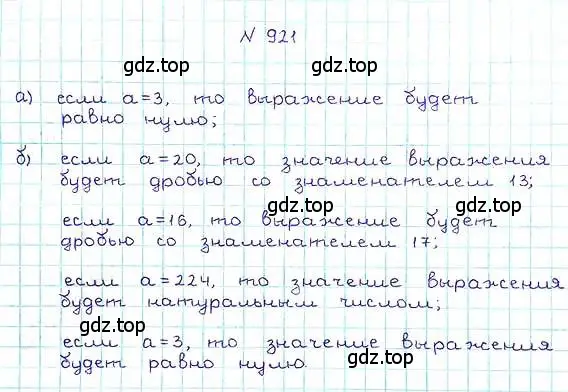 N 921
gdz.top
а) если a=3, то выражение будет
равно нулю;
gdz.top
б) если a=20, то значение выражения
будет дробью со знаменателем 13;
gdz.top
gdz.top
если a=16, то выражение будет
дробью со знаменателем 17;
если a=224, то значение выражения
будет натуральным числом;
gdz.top
gdz.top
если a=3, то значение выражения
будет равно нулю.